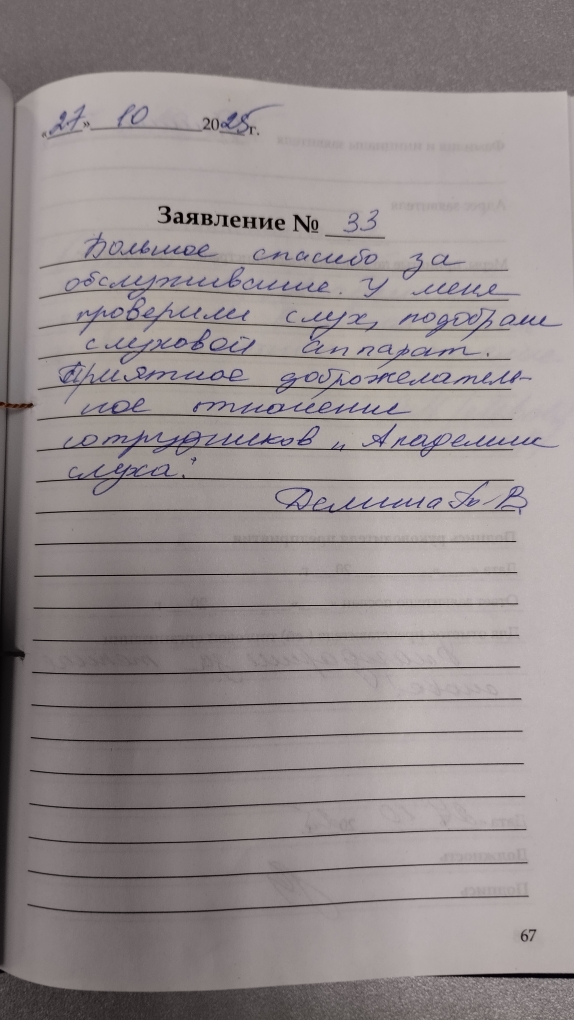 «27» 10 2025г.
Заявление № 33
Большое спасибо за
обслуживание. У меня
проверили слух, подобрали
слуховой аппарат.
Приятное доброжелатель-
ное отношение
сотрудников „Академии
слуха."
67